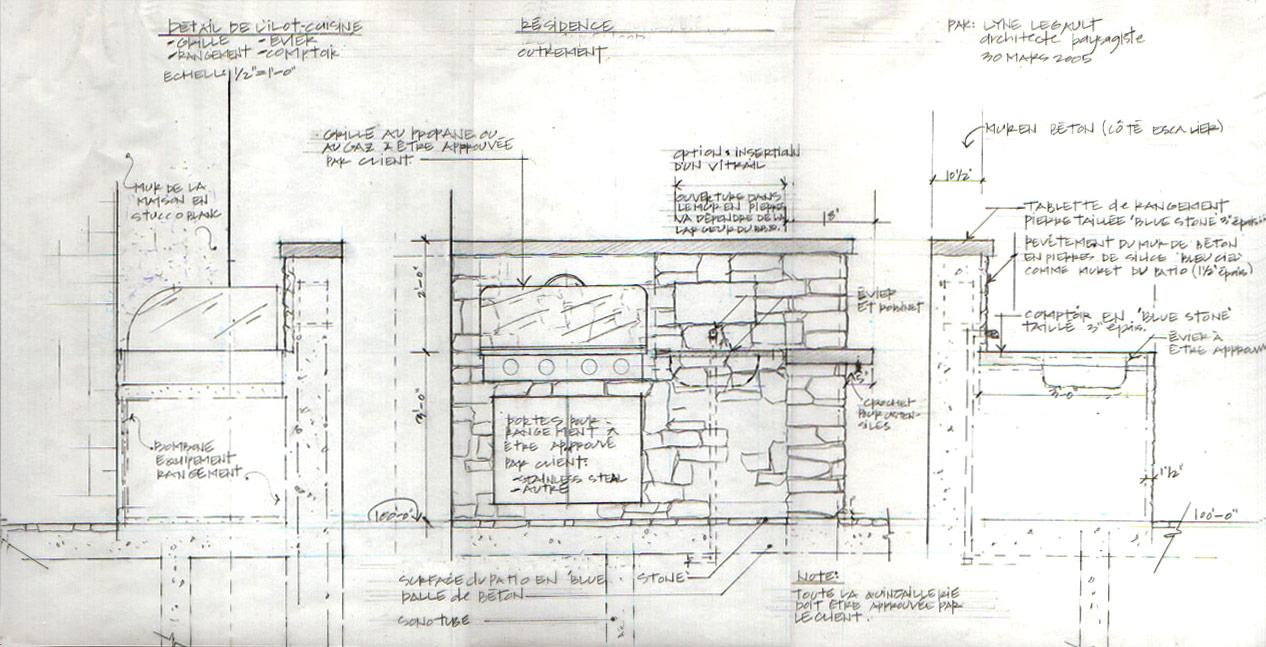 DÉTAIL DE L'ILOT-CUISINE
-GRILLE -ÉVIER
-RANGEMENT -COMPTOIR
ECHELLE 1/2"=1'-0"
RÉSIDENCE
OUTREMENT
PAR: LYNE LEGAULT
architecte paysagiste
30 MARS 2005
GRILLE AU PROPANE OU
AU GAZ À ÊTRE APPROUVÉE
PAR CLIENT
MUR DE LA
MAISON EN
STUCCO BLANC
OPTION: INSERTION
D'UN VITRAIL
OUVERTURE DANS
LE MUR EN PIERRE
VA DÉPENDRE DE LA
LARGEUR DU BBQ.
18"
MUR EN BÉTON (CÔTÉ ESCALIER)
10 1/2"
TABLETTE de RANGEMENT
PIERRE TAILLÉE 'BLUE STONE' 3" épais
REVÊTEMENT DU MUR DE BÉTON
EN PIERRES DE SILICE 'BLEU CIEL'
COMME MURET DU PATIO (1 1/2" épais)
2'-0"
ÉVIER
ET ROBINET
COMPTOIR EN 'BLUE STONE'
TAILLÉ 3" épais.
ÉVIER À
ETRE APPROUV
3'-0"
5"
CROCHET
POUR USTEN-
SILES
3'-0"
PORTES POUR
RANGEMENT À
ÊTRE APPROUVÉ
PAR CLIENT:
-STAINLESS STEAL
-AUTRE
BOMBONE
EQUIPEMENT
RANGEMENT
1 1/2"
100'-0"
100'-0"
SURFACE du PATIO EN 'BLUE STONE'
DALLE de BÉTON
SONOTUBE
NOTE:
TOUTE LA QUINCAILLERIE
DOIT ÊTRE APPROUVÉE PAR
LE CLIENT.